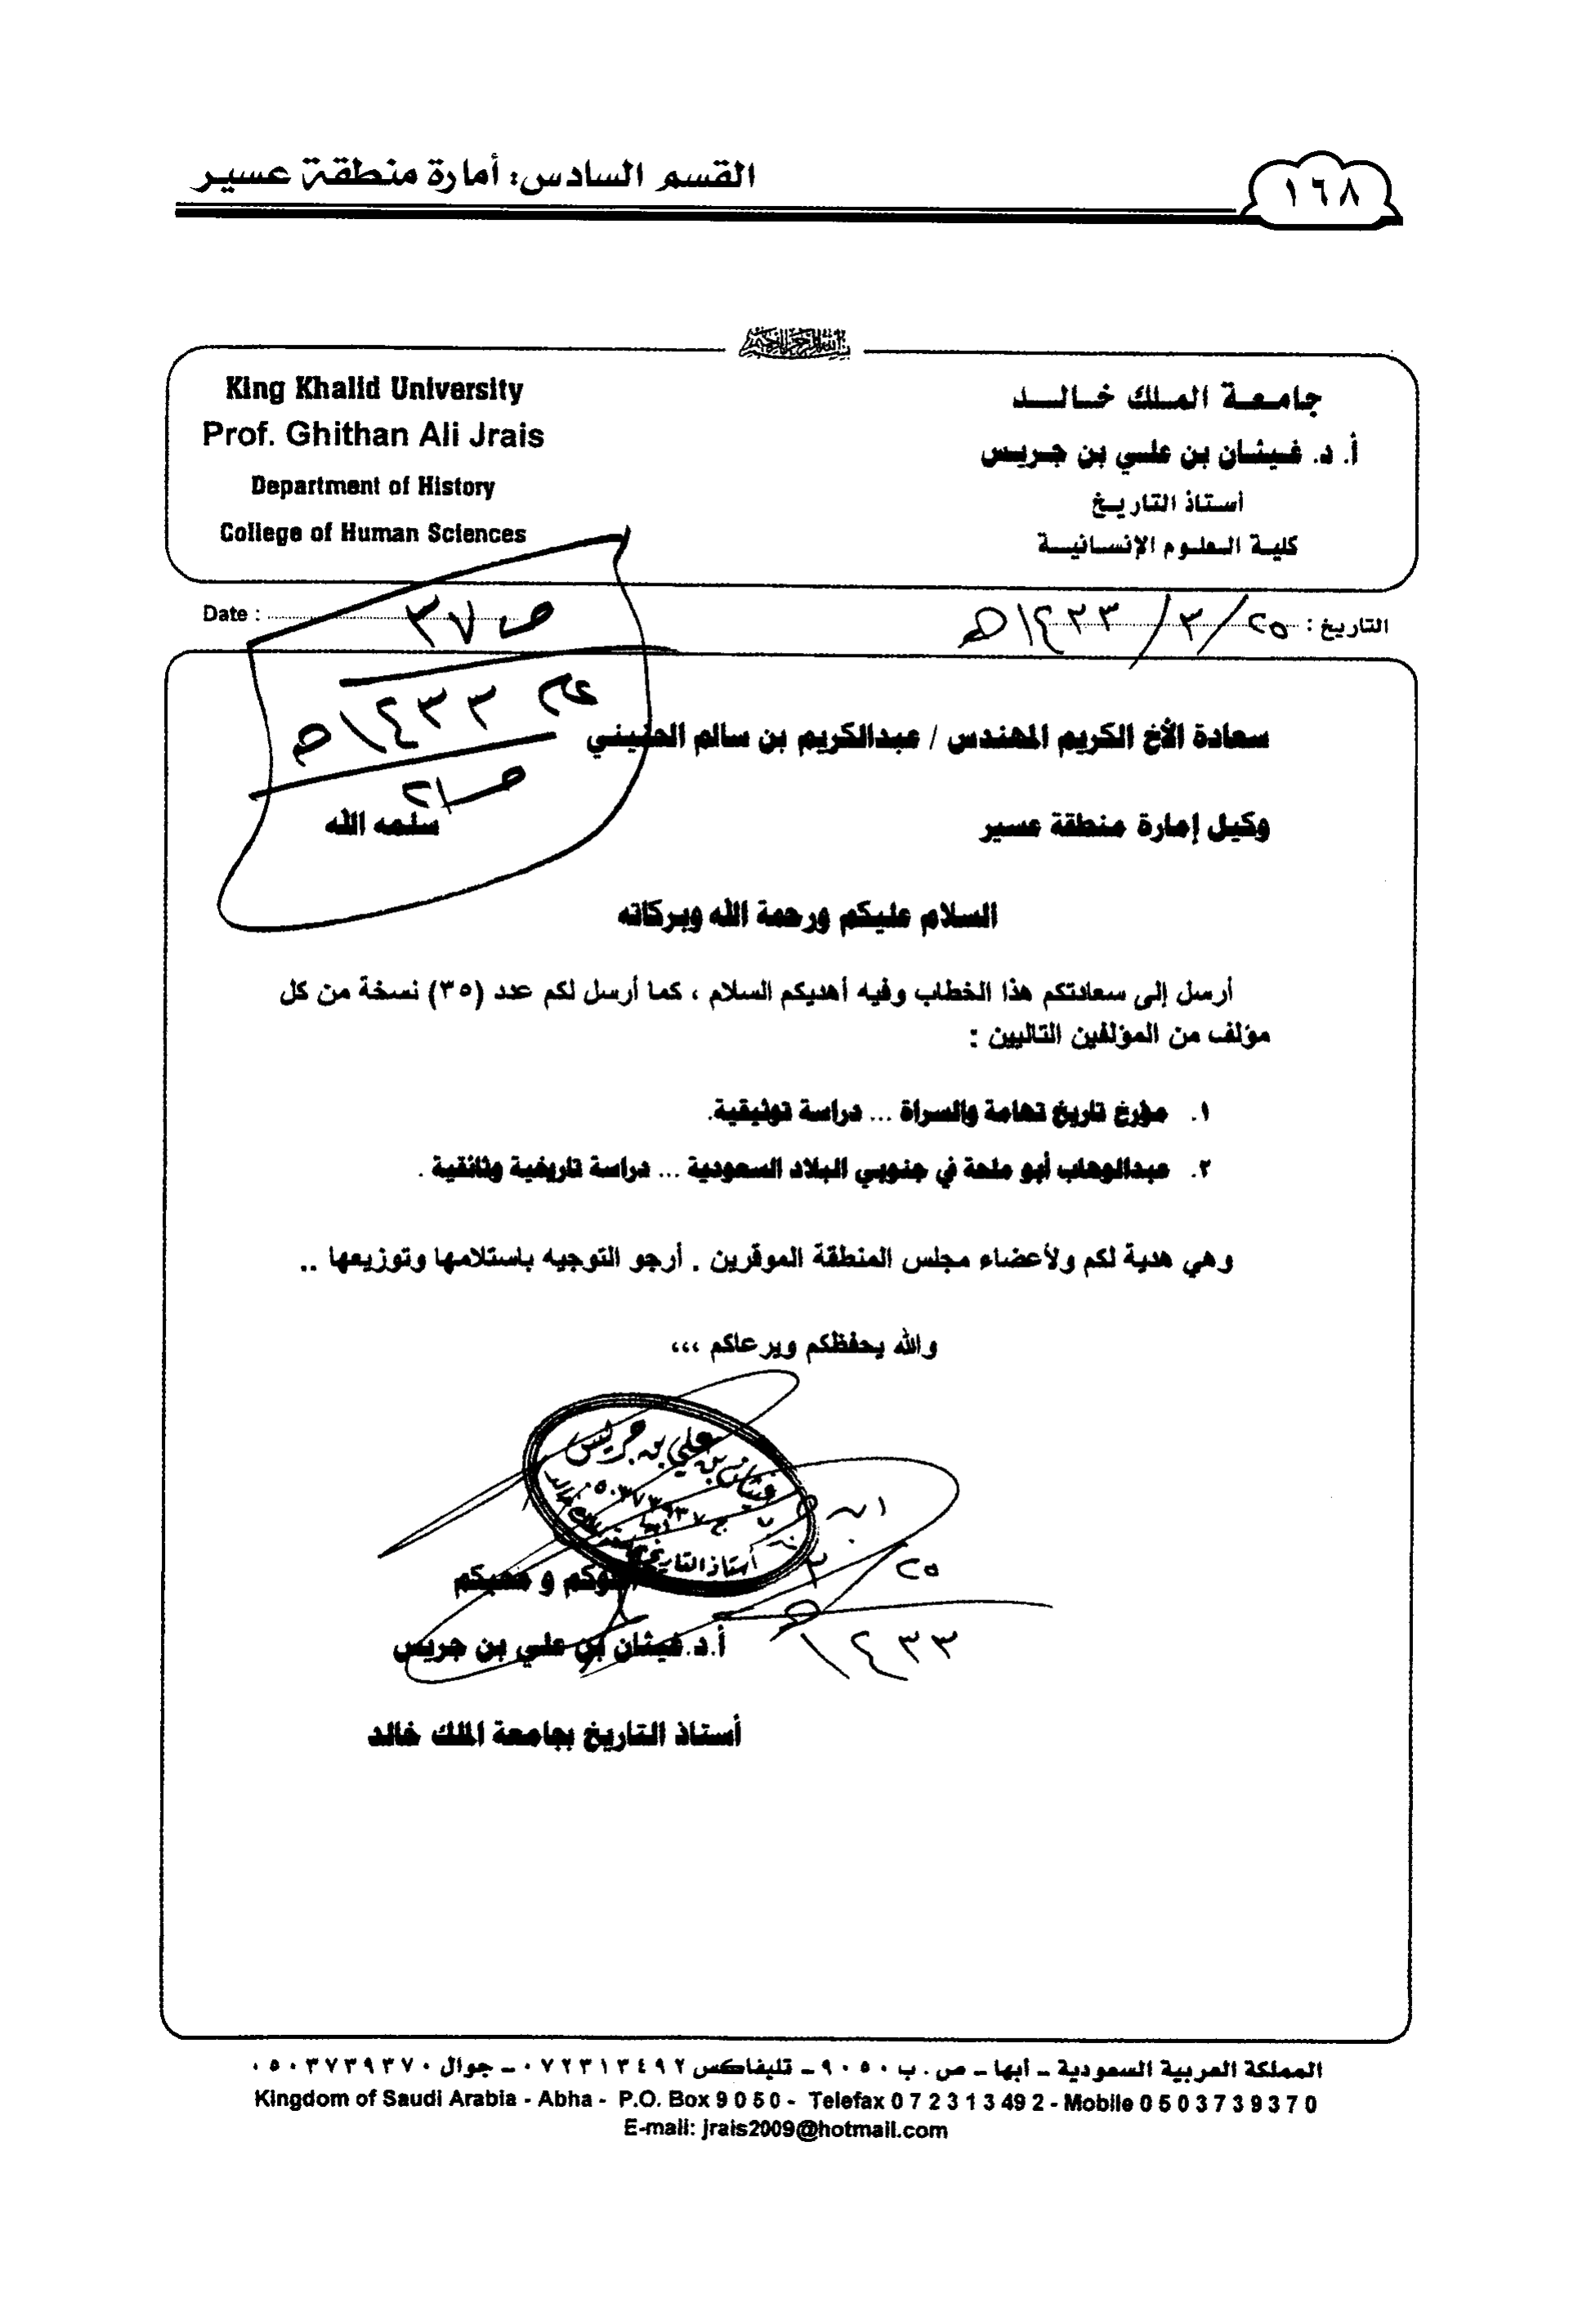 القسم السادس: أمارة منطقة عسير
١٦٨
بسم الله الرحمن الرحيم
King Khalid University
Prof. Ghithan Ali Jrais
Department of History
College of Human Sciences
جامعة الملك خالد
أ. د. غيثان بن علي بن جريس
أستاذ التاريخ
كلية العلوم الإنسانية
التاريخ : ٢٥/٣/١٤٣٣هـ
Date :
ص ٣٧
عام ١٤٣٣هـ
سعادة الأخ الكريم المهندس / عبدالكريم بن سالم الحنيني
وكيل إمارة منطقة عسير
سلمه الله
السلام عليكم ورحمة الله وبركاته
أرسل إلى سعادتكم هذا الخطاب وفيه أهديكم السلام ، كما أرسل لكم عدد (٣٥) نسخة من كل
مؤلف من المؤلفين التاليين :
١. مؤرخ تاريخ تهامة والسراة ... دراسة توثيقية.
٢. عبدالوهاب أبو ملحة في جنوبي البلاد السعودية ... دراسة تاريخية وثائقية .
وهي هدية لكم ولأعضاء مجلس المنطقة الموقرين . أرجو التوجيه باستلامها وتوزيعها ..
والله يحفظكم ويرعاكم ،،،
غيثان بن علي بن جريس
أستاذ التاريخ
أخوكم و محبكم
٢٥
٣
١٤٣٣هـ
أ.د.غيثان بن علي بن جريس
أستاذ التاريخ بجامعة الملك خالد
المملكة العربية السعودية – أبها – ص . ب ٩٠٥٠ – تليفاكس ٠٧٢٣١٣٤٩٢ – جوال ٠٥٠٣٧٣٩٣٧٠
Kingdom of Saudi Arabia - Abha - P.O. Box 9 0 5 0 - Telefax 0 7 2 3 1 3 49 2 - Mobile 0 5 0 3 7 3 9 3 7 0
E-mail: jrais2009@hotmail.com